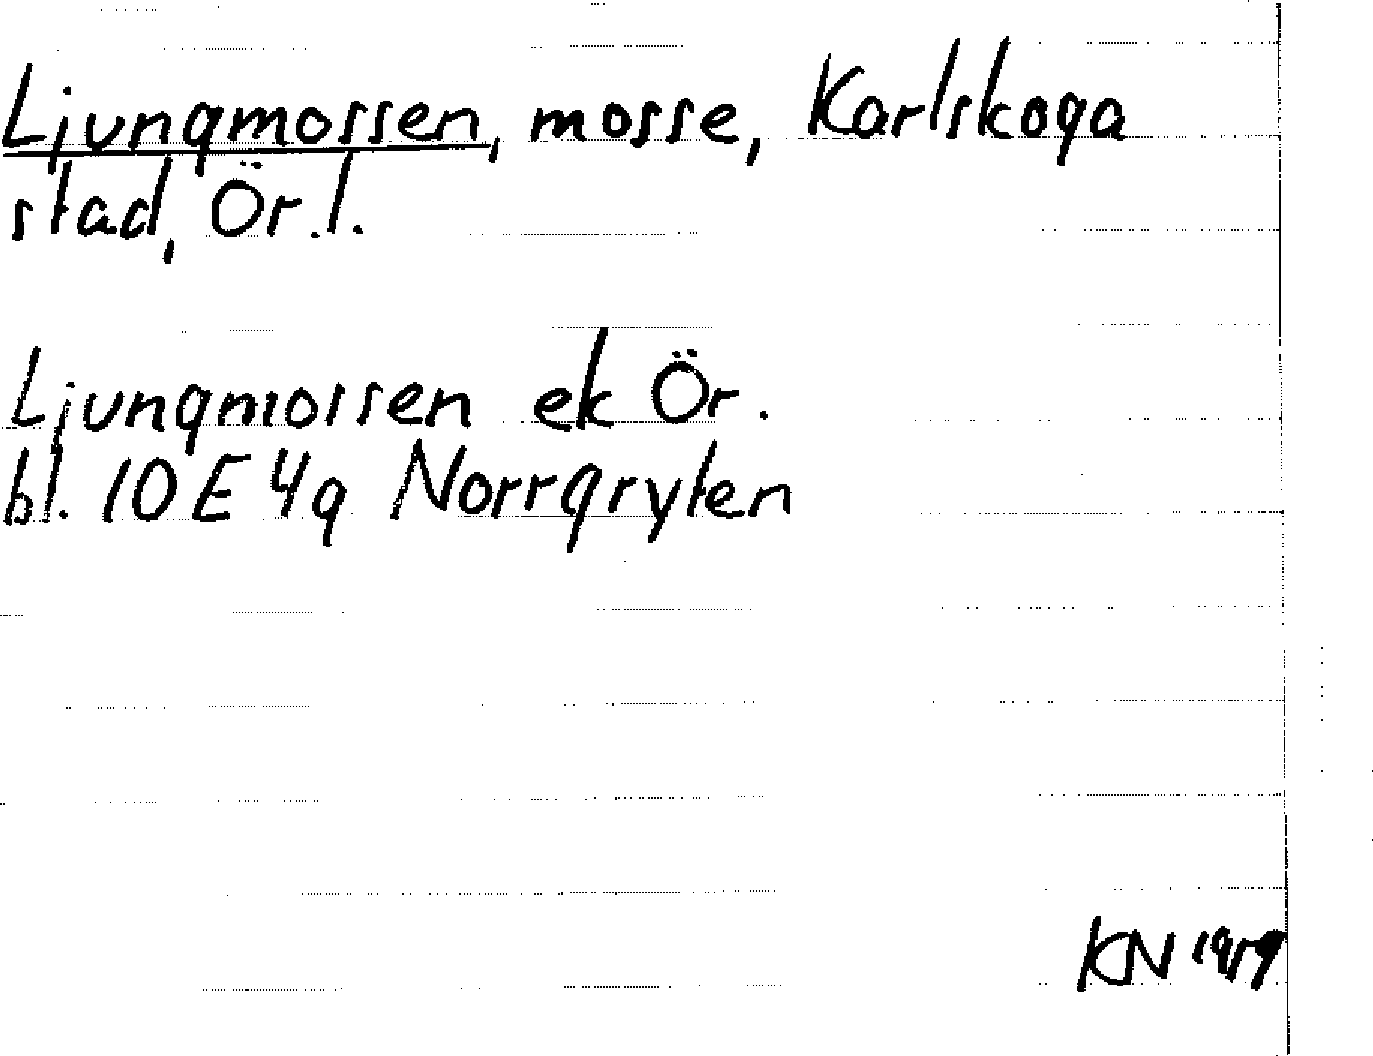 Ljungmossen, mosse, Karlskoga
stad, Ör. l.
Ljungmossen ek Ör.
bl. 10 E 4g Norrgryten
KN